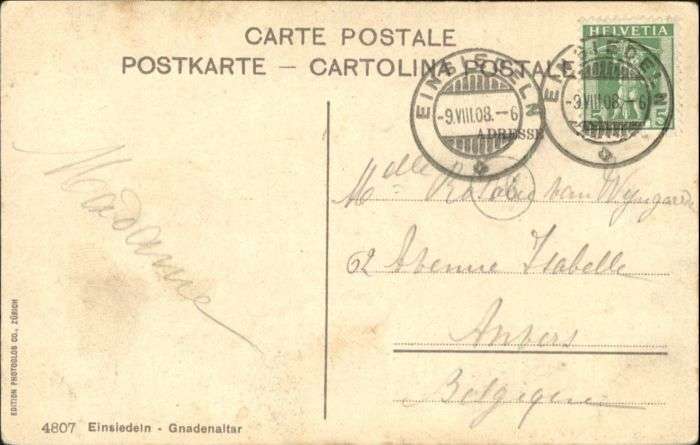 CARTE POSTALE
POSTKARTE — CARTOLINA POSTALE
HELVETIA
5 5
EINSIEDELN
-9.VIII.08.--6
EINSIEDELN
-9.VIII.08.--6
ADRESSE
Madame
Mdelle Rosalie van Wyngaerd
62 Avenue Isabelle
Anvers
Belgique
EDITION PHOTOGLOB CO., ZÜRICH
4807 Einsiedeln - Gnadenaltar